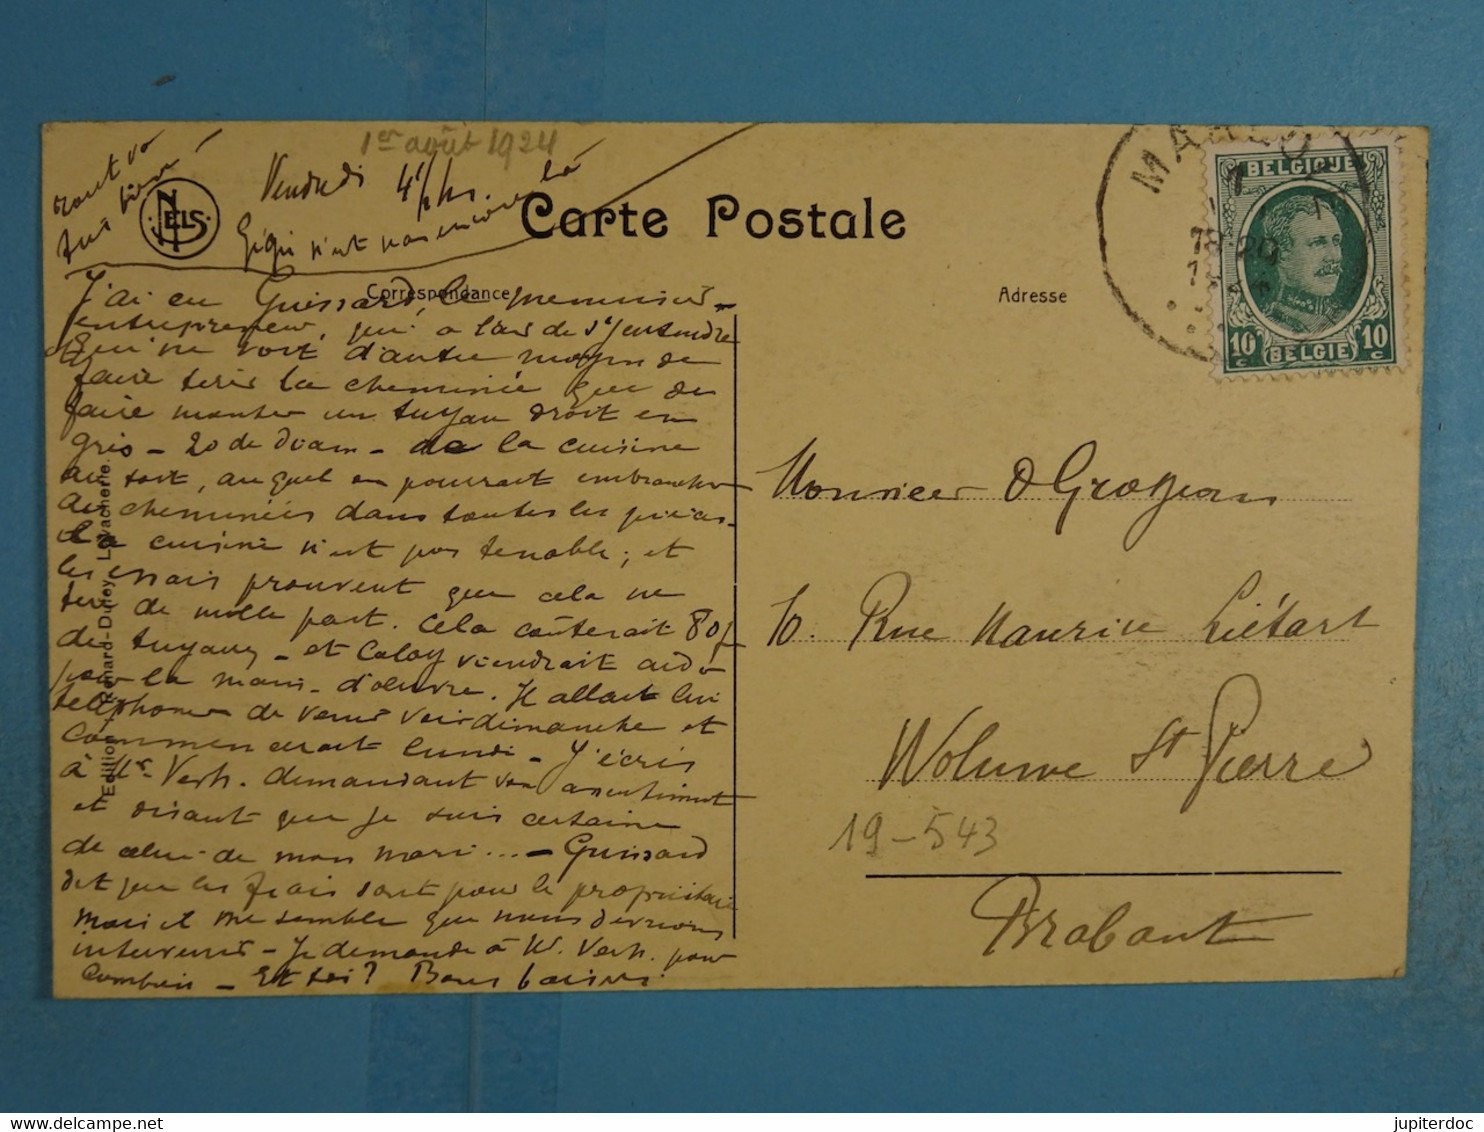 1er août 1924
tout va
bien
Vendredi 4 1/2 hrs.
Gigi n'est pas encore là
NELS
Carte Postale
Correspondance
Adresse
BELGIQUE
10 c BELGIE 10 c
J'ai eu Guissard, le menuisier-
entrepreneur, qui a l'air de s'y entendre
et qui ne voit d'autre moyen de
faire tirer la cheminée que de
faire monter un tuyau droit en
grès - 20 de diam - de la cuisine
au toit, auquel on pourrait embrancher
des cheminées dans toutes les pièces.
La cuisine n'est pas tenable ; et
les essais prouvent que cela ne
tire de nulle part. Cela coûterait 80 f
de tuyaux - et Caloy viendrait aider
pour la main-d'œuvre. Il allait lui
téléphoner de venir voir dimanche et
commencerait lundi - J'écris
à Mr. Verh. demandant son assentiment
et disant que je suis certaine
de celui de mon mari... - Guissard
dit que les frais sont pour le propriétaire
mais il me semble que nous devrions
intervenir - Je demande à M. Verh. pour
combien - Et toi ? Bons baisers
Edition Lavacherie.
Monsieur O Grosjean
10. Rue Maurice Liétart
Woluwe St Pierre
19-543
Brabant
jupiterdoc